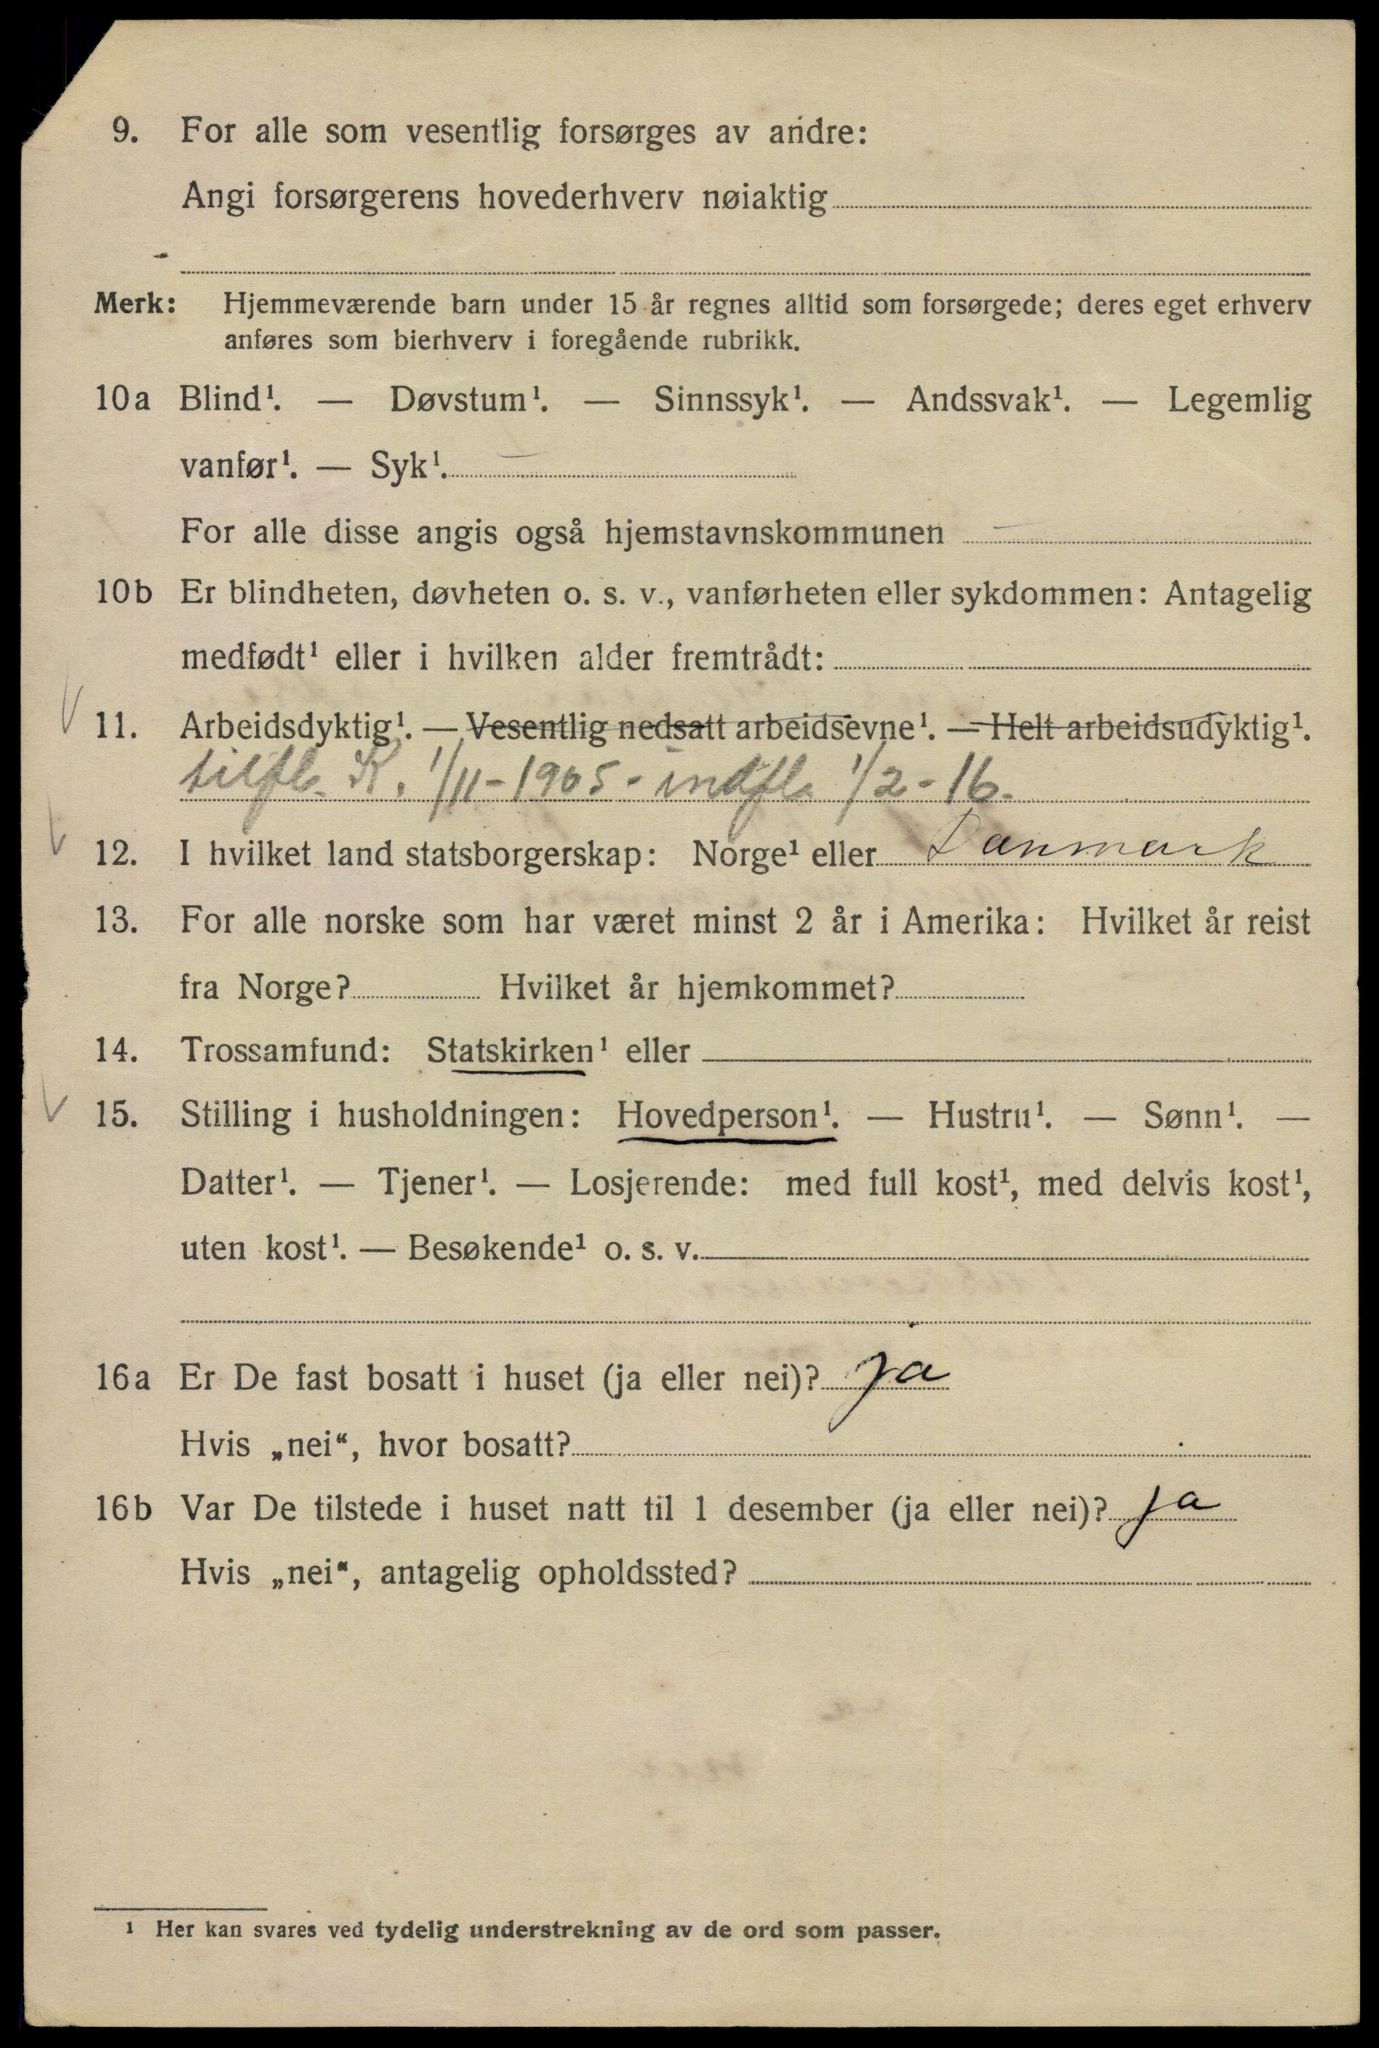 9. For alle som vesentlig forsørges av andre:
Angi forsørgerens hovederhverv nøiaktig
Merk: Hjemmeværende barn under 15 år regnes alltid som forsørgede; deres eget erhverv
anføres som bierhverv i foregående rubrikk.
10a Blind¹. — Døvstum¹. — Sinnssyk¹. — Andssvak¹. — Legemlig
vanfør¹. — Syk¹. —
For alle disse angis også hjemstavnskommunen —
10b Er blindheten, døvheten o. s. v., vanførheten eller sykdommen: Antagelig
medfødt¹ eller i hvilken alder fremtrådt:
11. Arbeidsdyktig¹. — Vesentlig nedsatt arbeidsevne¹. — Helt arbeidsudyktig¹.
tilfl. K. 1/11-1905 - indfl. 1/2-16.
12. I hvilket land statsborgerskap: Norge¹ eller Danmark
13. For alle norske som har været minst 2 år i Amerika: Hvilket år reist
fra Norge? Hvilket år hjemkommet?
14. Trossamfund: Statskirken¹ eller
15. Stilling i husholdningen: Hovedperson¹. — Hustru¹. — Sønn¹. —
Datter¹. — Tjener¹. — Losjerende: med full kost¹, med delvis kost¹,
uten kost¹. — Besøkende¹ o. s. v.
16a Er De fast bosatt i huset (ja eller nei)? ja
Hvis „nei“, hvor bosatt?
16b Var De tilstede i huset natt til 1 desember (ja eller nei)? ja
Hvis „nei“, antagelig opholdssted?
¹ Her kan svares ved tydelig understrekning av de ord som passer.